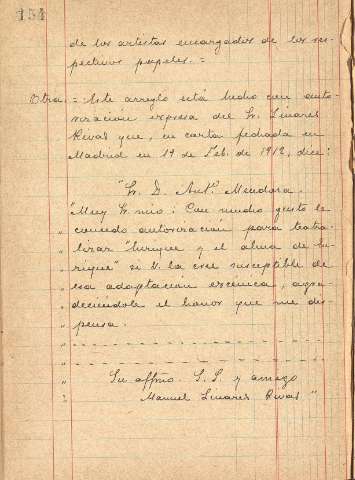 154
de los artistas encargados de los res-
pectivos papeles. =
Otra. = Este arreglo está hecho con auto-
rización expresa del Sr. Linares
Rivas que, en carta fechada en
Madrid en 19 de Feb. de 1912, dice:
"Sr. D. Antº. Mendoza.
"Muy Sr. mio: Con mucho gusto le
" concedo autorización para teatra-
" lizar "Lurique y el alma de Lu-
" rique" si V. la cree susceptible de
" esa adaptación escénica, agra-
" deciéndole el honor que me dis-
" pensa.
" - - - - - - - - - - - - - - - - - -
" - - - - - - - - - - - - - - - - - -
" Su affmo. S. S. y amigo
" Manuel Linares Rivas "